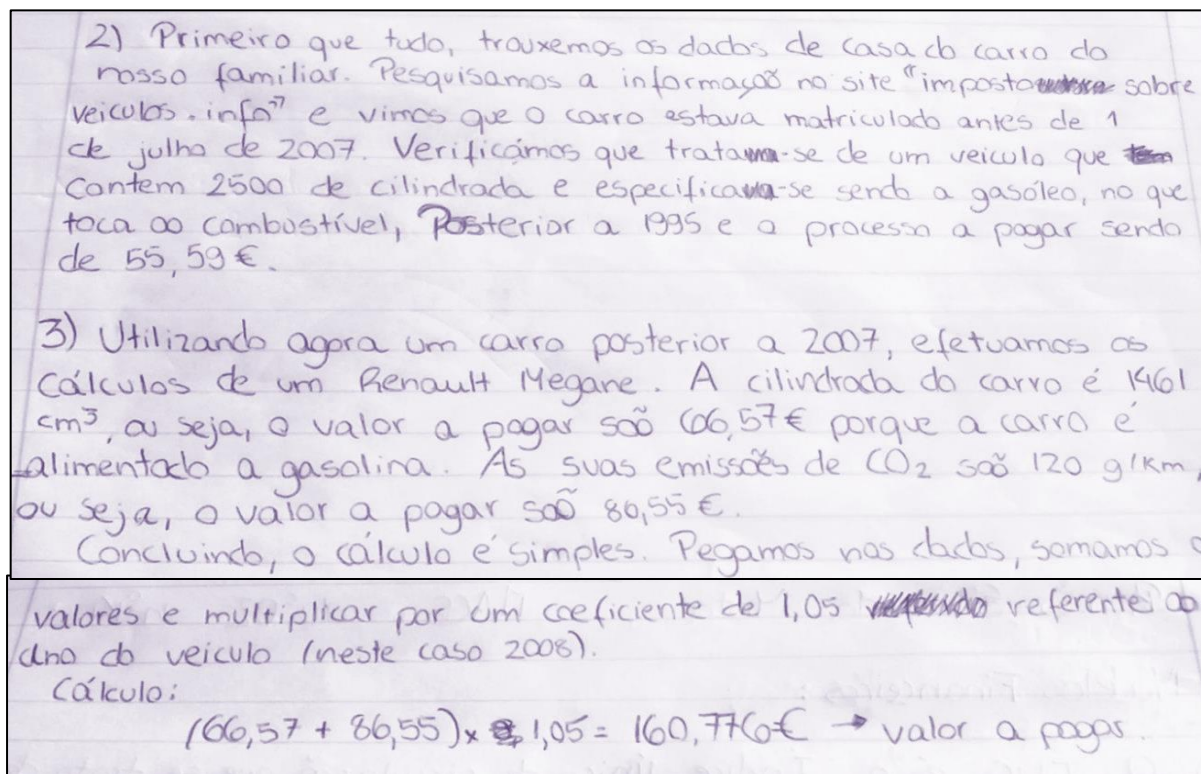 2) Primeiro que tudo, trouxemos os dados de casa do carro do
nosso familiar. Pesquisamos a informação no site "imposto sobre
veiculos.info" e vimos que o carro estava matriculado antes de 1
de julho de 2007. Verificámos que trata-se de um veiculo que
contem 2500 de cilindrada e especifica-se sendo a gasóleo, no que
toca ao combustível, Posterior a 1995 e o processo a pagar sendo
de 55,59 €.
3) Utilizando agora um carro posterior a 2007, efetuamos os
cálculos de um Renault Megane. A cilindrada do carro é 1461
cm³, ou seja, o valor a pagar são 66,57 € porque a carro é
alimentado a gasolina. As suas emissões de CO₂ são 120 g/Km,
ou seja, o valor a pagar são 86,55 €.
Concluindo, o cálculo é simples. Pegamos nos dados, somamos
valores e multiplicar por um coeficiente de 1,05 referente ao
ano do veiculo (neste caso 2008).
Cálculo:
(66,57 + 86,55) x 1,05 = 160,776€ → valor a pagar.